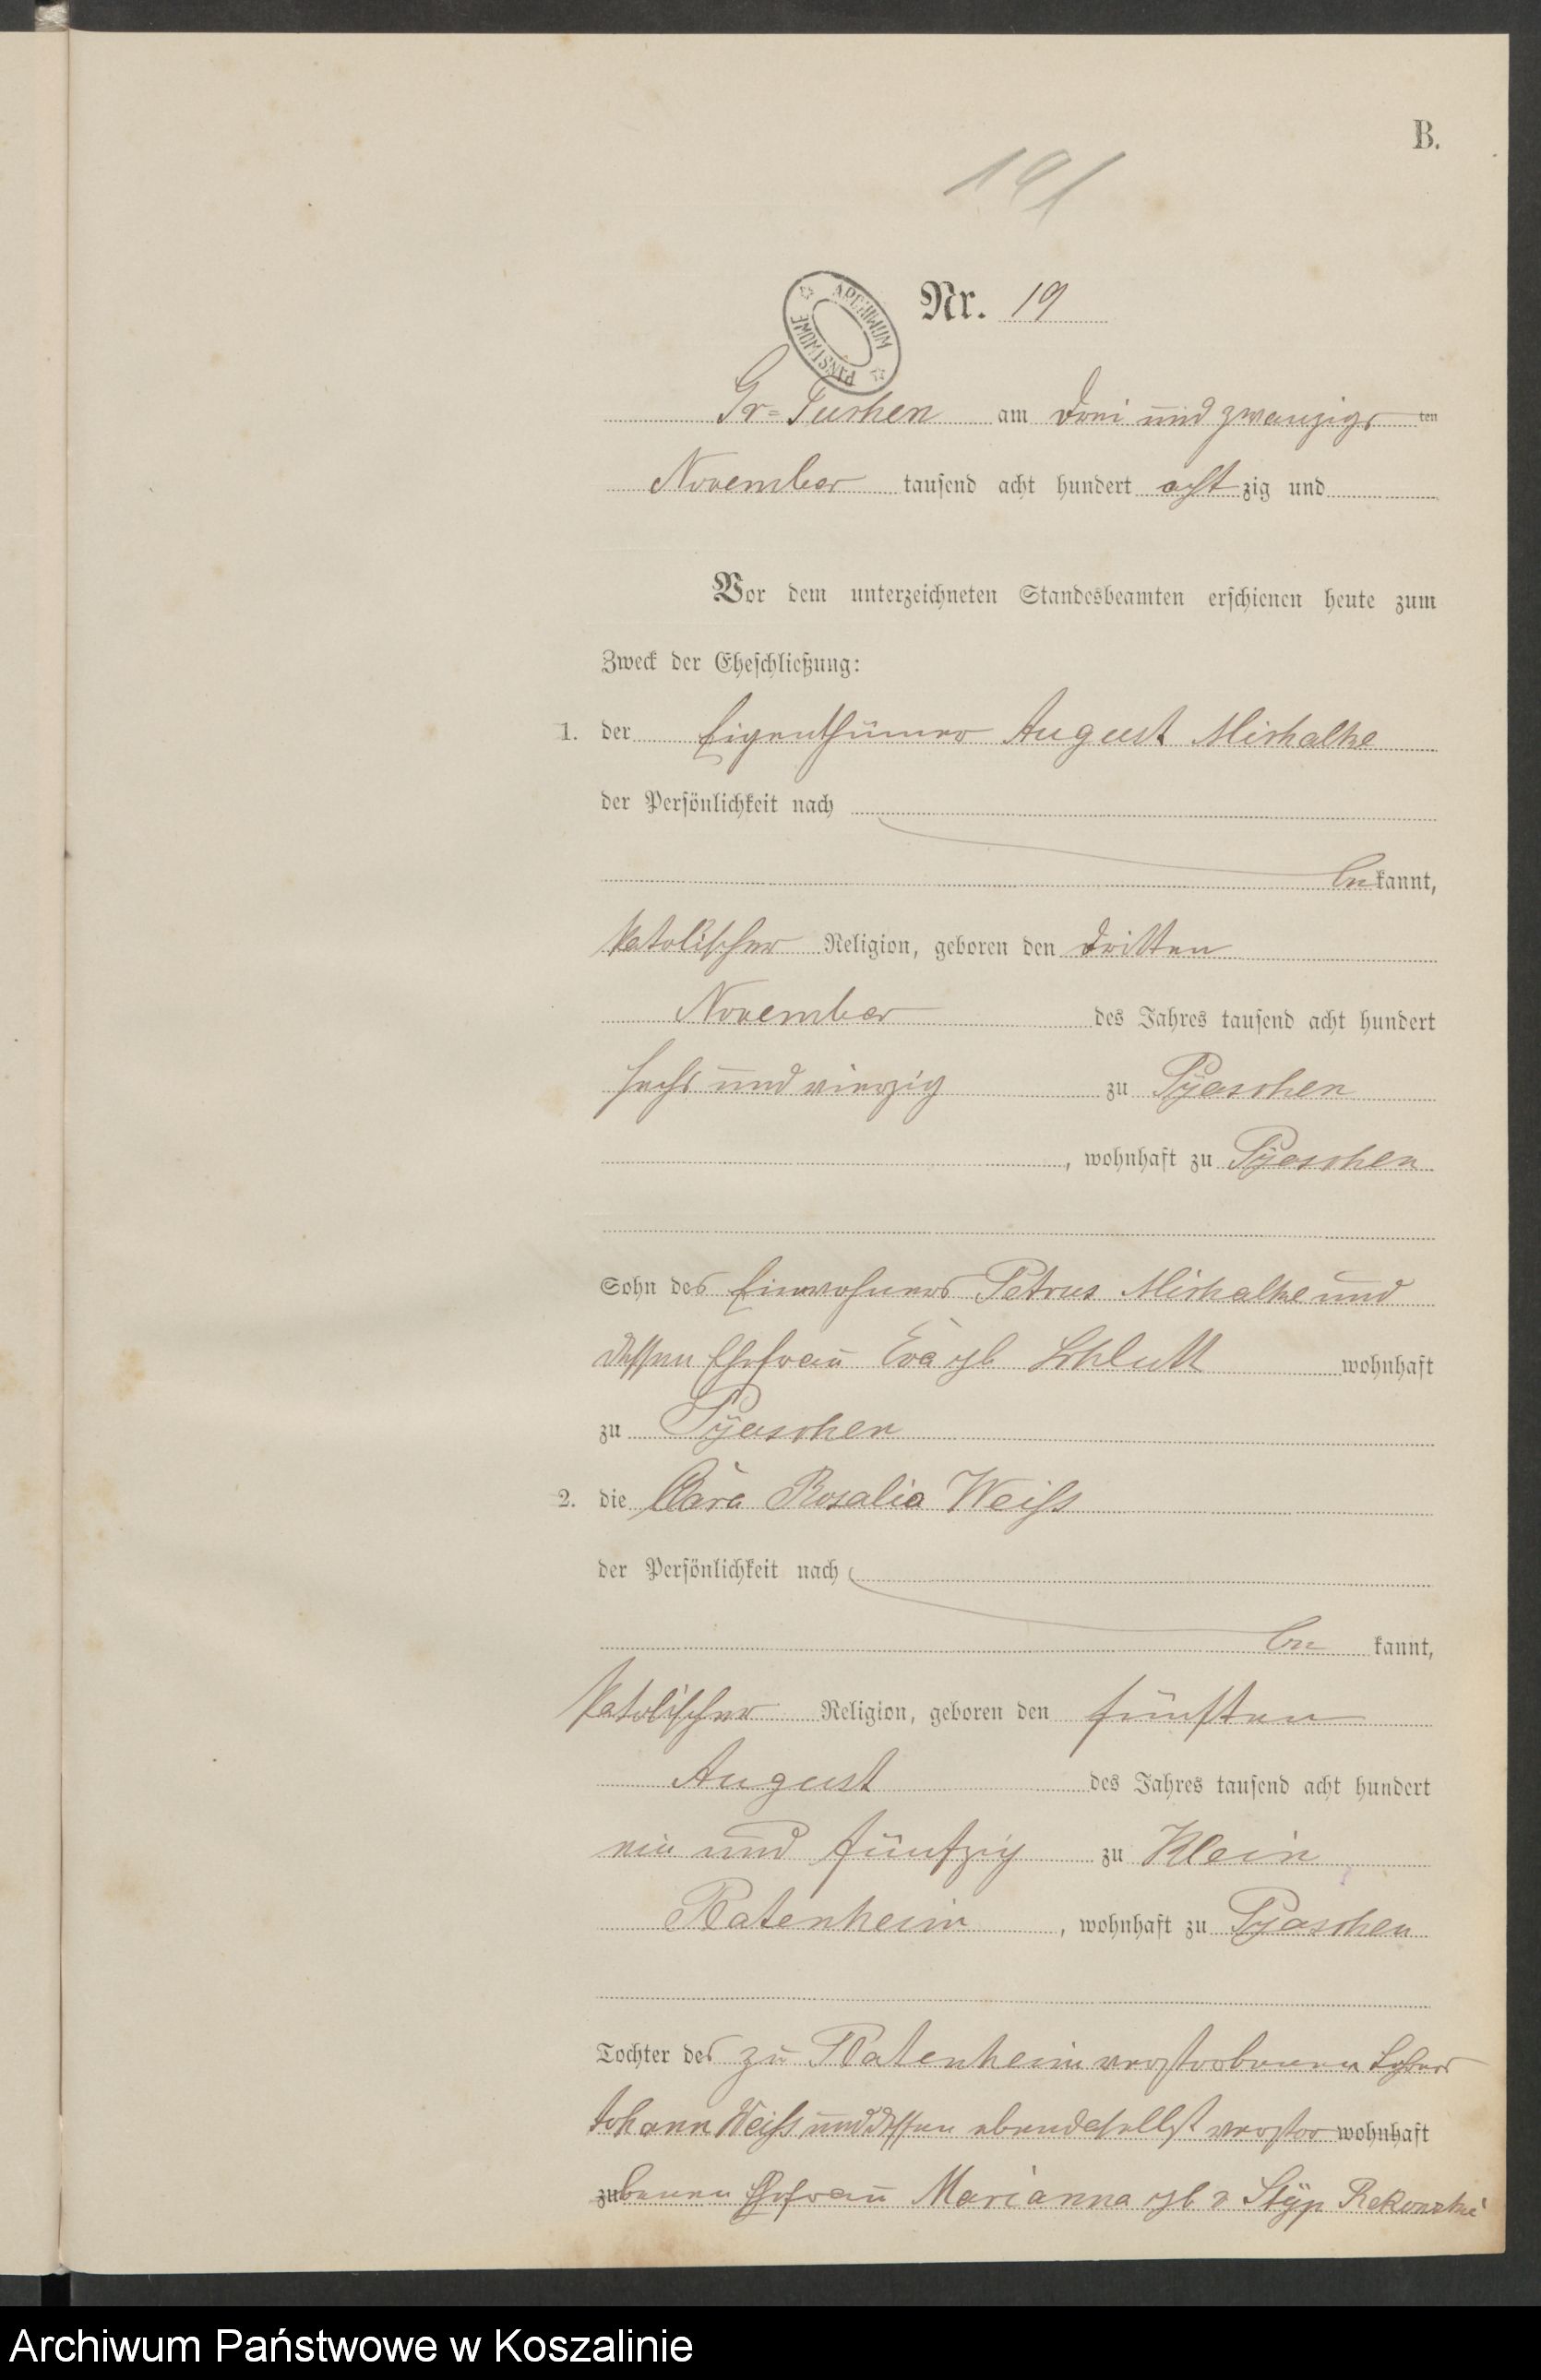 B.
191
Nr. 19
ARCHIWUM PAŃSTWOWE
Gr=Tuchen am drei und zwanzigsten
November tausend acht hundert achtzig und
Vor dem unterzeichneten Standesbeamten erschienen heute zum
Zweck der Eheschließung:
1. der Eigenthümer August Mischalke
der Persönlichkeit nach
bekannt,
katolischer Religion, geboren den dritten
November des Jahres tausend acht hundert
sechs und vierzig zu Pyaschen
, wohnhaft zu Pyaschen
Sohn des Einwohners Petrus Mischalke und
dessen Ehefrau Eva geb Schlutt wohnhaft
zu Pyaschen
2. die Clara Rosalia Weiß
der Persönlichkeit nach
be kannt,
katolischer Religion, geboren den fünften
August des Jahres tausend acht hundert
ein und fünfzig zu Klein
Platenheim, wohnhaft zu Pyaschen
Tochter des zu Platenheim verstorbenen Lehrers
Johann Weiß und dessen ebendaselbst verstor wohnhaft
zu benen Ehefrau Marianna geb v Styp Rekowski
Archiwum Państwowe w Koszalinie